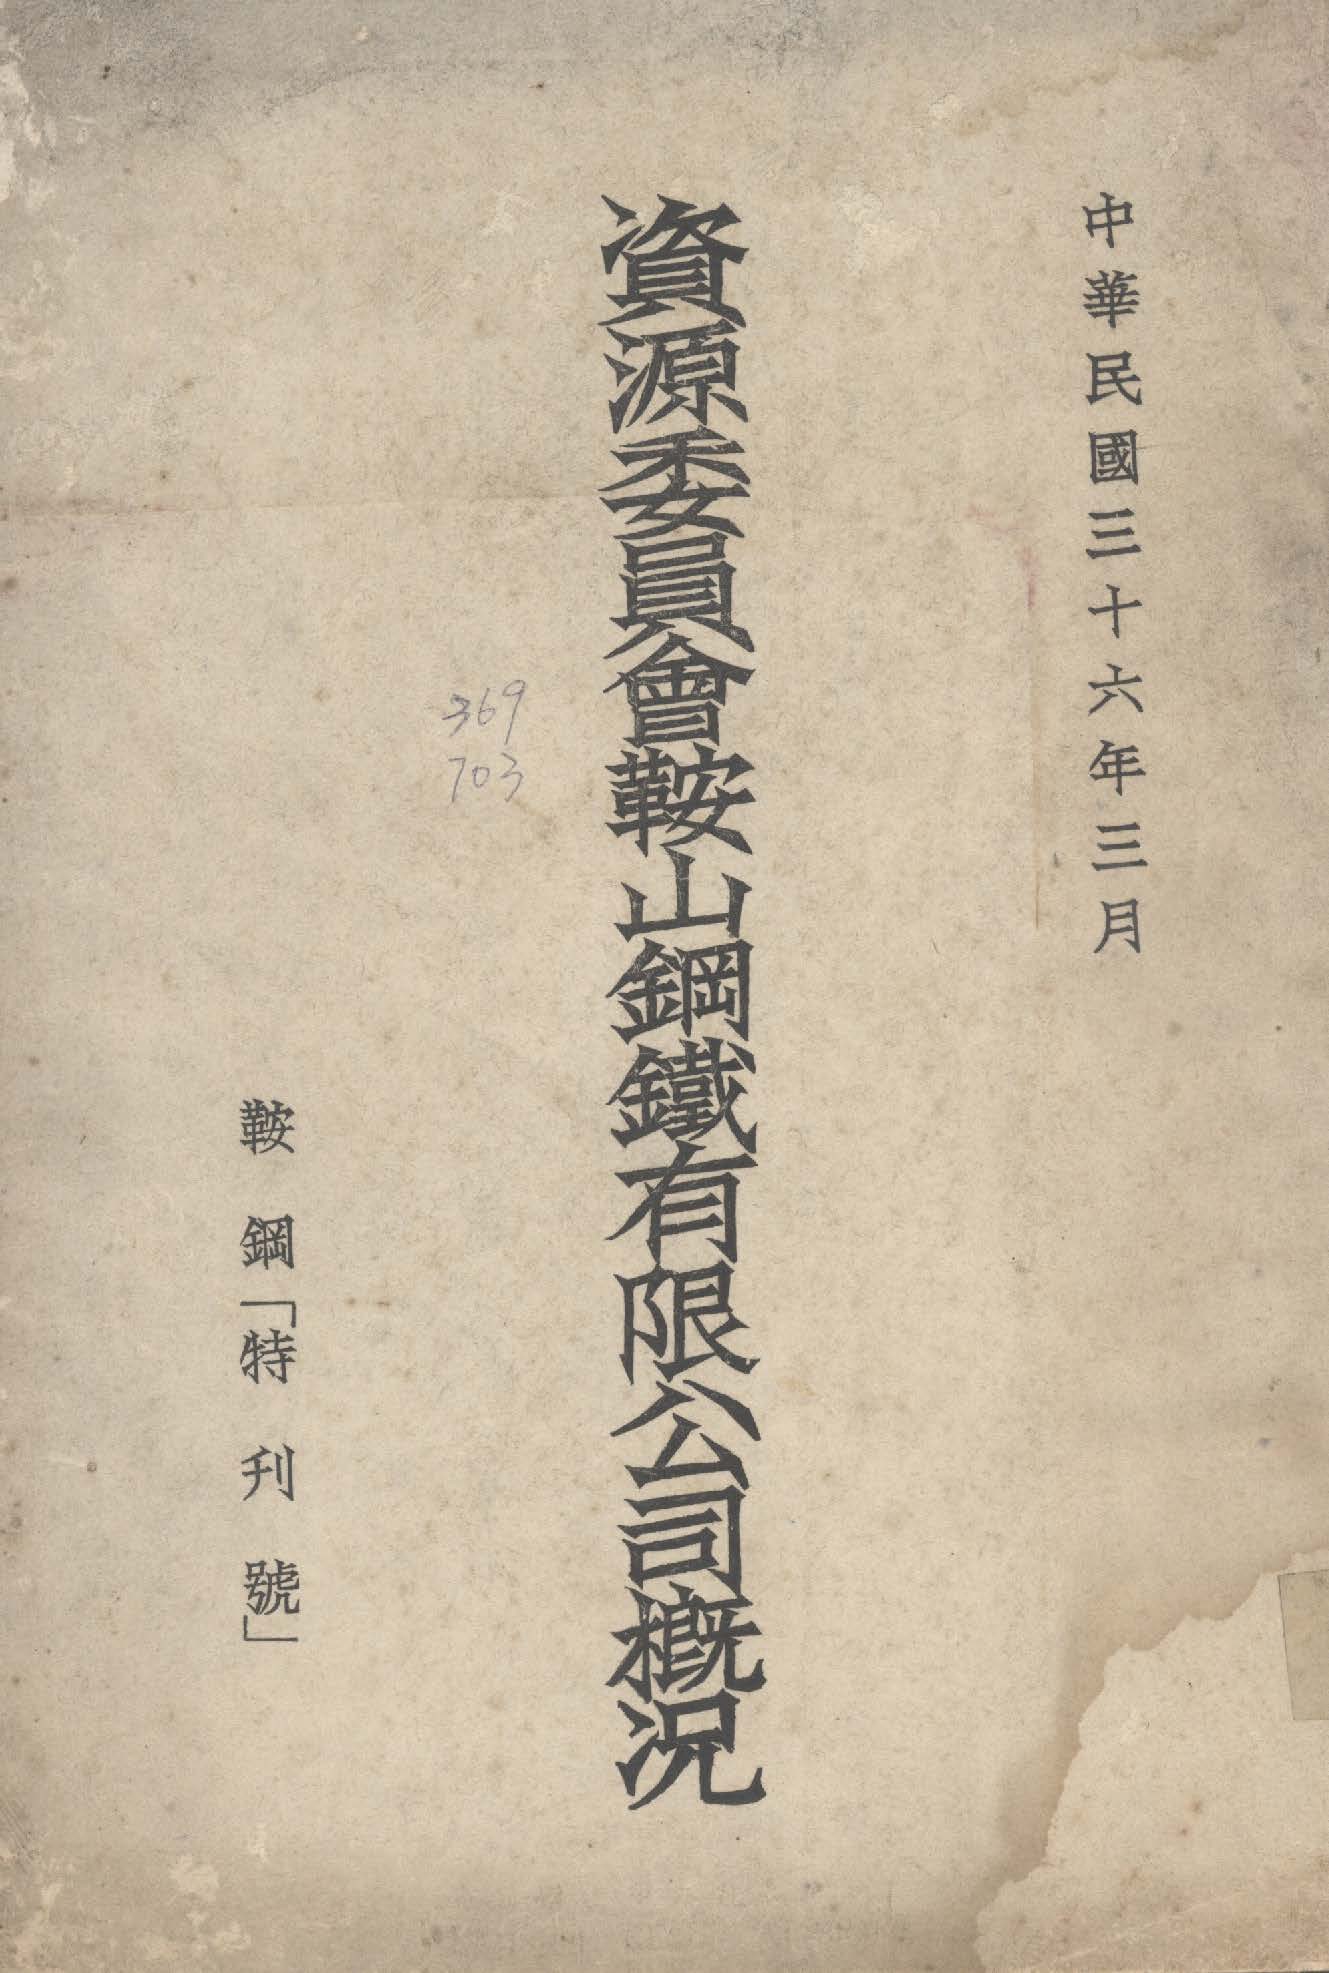 中華民國三十六年三月
資源委員會鞍山鋼鐵有限公司概況
369
703
鞍鋼「特刊號」